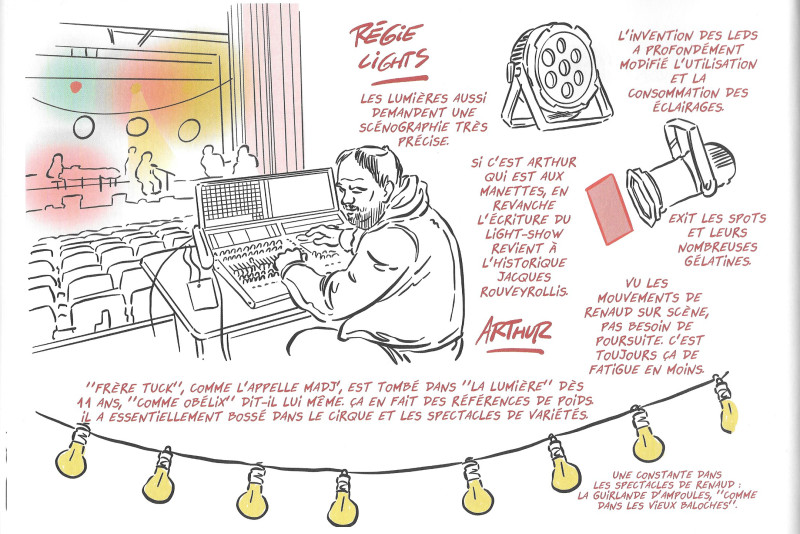 RÉGIE
LIGHTS
LES LUMIÈRES AUSSI
DEMANDENT UNE
SCÉNOGRAPHIE TRÈS
PRÉCISE.
L'INVENTION DES LEDS
A PROFONDÉMENT
MODIFIÉ L'UTILISATION
ET LA
CONSOMMATION DES
ÉCLAIRAGES.
SI C'EST ARTHUR
QUI EST AUX
MANETTES, EN
REVANCHE
L'ÉCRITURE DU
LIGHT-SHOW
REVIENT À
L'HISTORIQUE
JACQUES
ROUVEYROLLIS.
EXIT LES SPOTS
ET LEURS
NOMBREUSES
GÉLATINES.
VU LES
MOUVEMENTS DE
RENAUD SUR SCÈNE,
PAS BESOIN DE
POURSUITE. C'EST
TOUJOURS ÇA DE
FATIGUE EN MOINS.
ARTHUR
"FRÈRE TUCK", COMME L'APPELLE MADJ', EST TOMBÉ DANS "LA LUMIÈRE" DÈS
11 ANS, "COMME OBÉLIX" DIT-IL LUI MÊME. ÇA EN FAIT DES RÉFÉRENCES DE POIDS.
IL A ESSENTIELLEMENT BOSSÉ DANS LE CIRQUE ET LES SPECTACLES DE VARIÉTÉS.
UNE CONSTANTE DANS
LES SPECTACLES DE RENAUD :
LA GUIRLANDE D'AMPOULES, "COMME
DANS LES VIEUX BALOCHES".